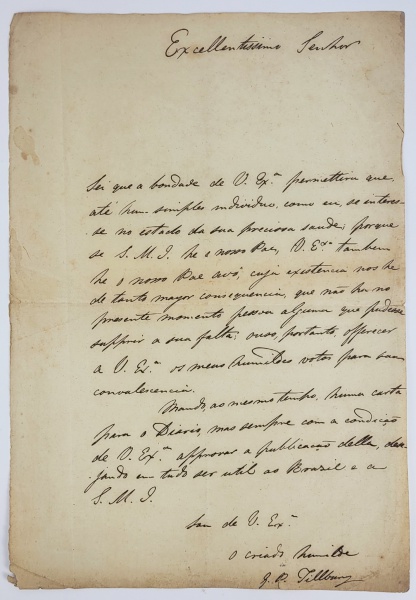 Excellentissimo Senhor
Sei que a bondade de V. Ex.ª permettira que
até hum simples individuo, como eu, se interes-
-se no estado da sua preciosa saude; porque
se S. M. I. he o nosso Pae, V. Ex.ª tambem
he o nosso Pae avô, cuja existencia nos he
de tanto mayor consequencia, que não ha no
presente momento pessoa alguma que podesse
supprir a sua falta; ouso, portanto, offerecer
a V. Ex.ª os meus humildes votos para sua
convalescencia.
Mando, ao mesmo tempo, huma carta
para o Diario, mas sempre com a condição
de V. Ex.ª approvar a publicação della, dese-
jando em tudo ser util ao Brazil e a
S. M. I.
Sou de V. Ex.ª
o criado humilde